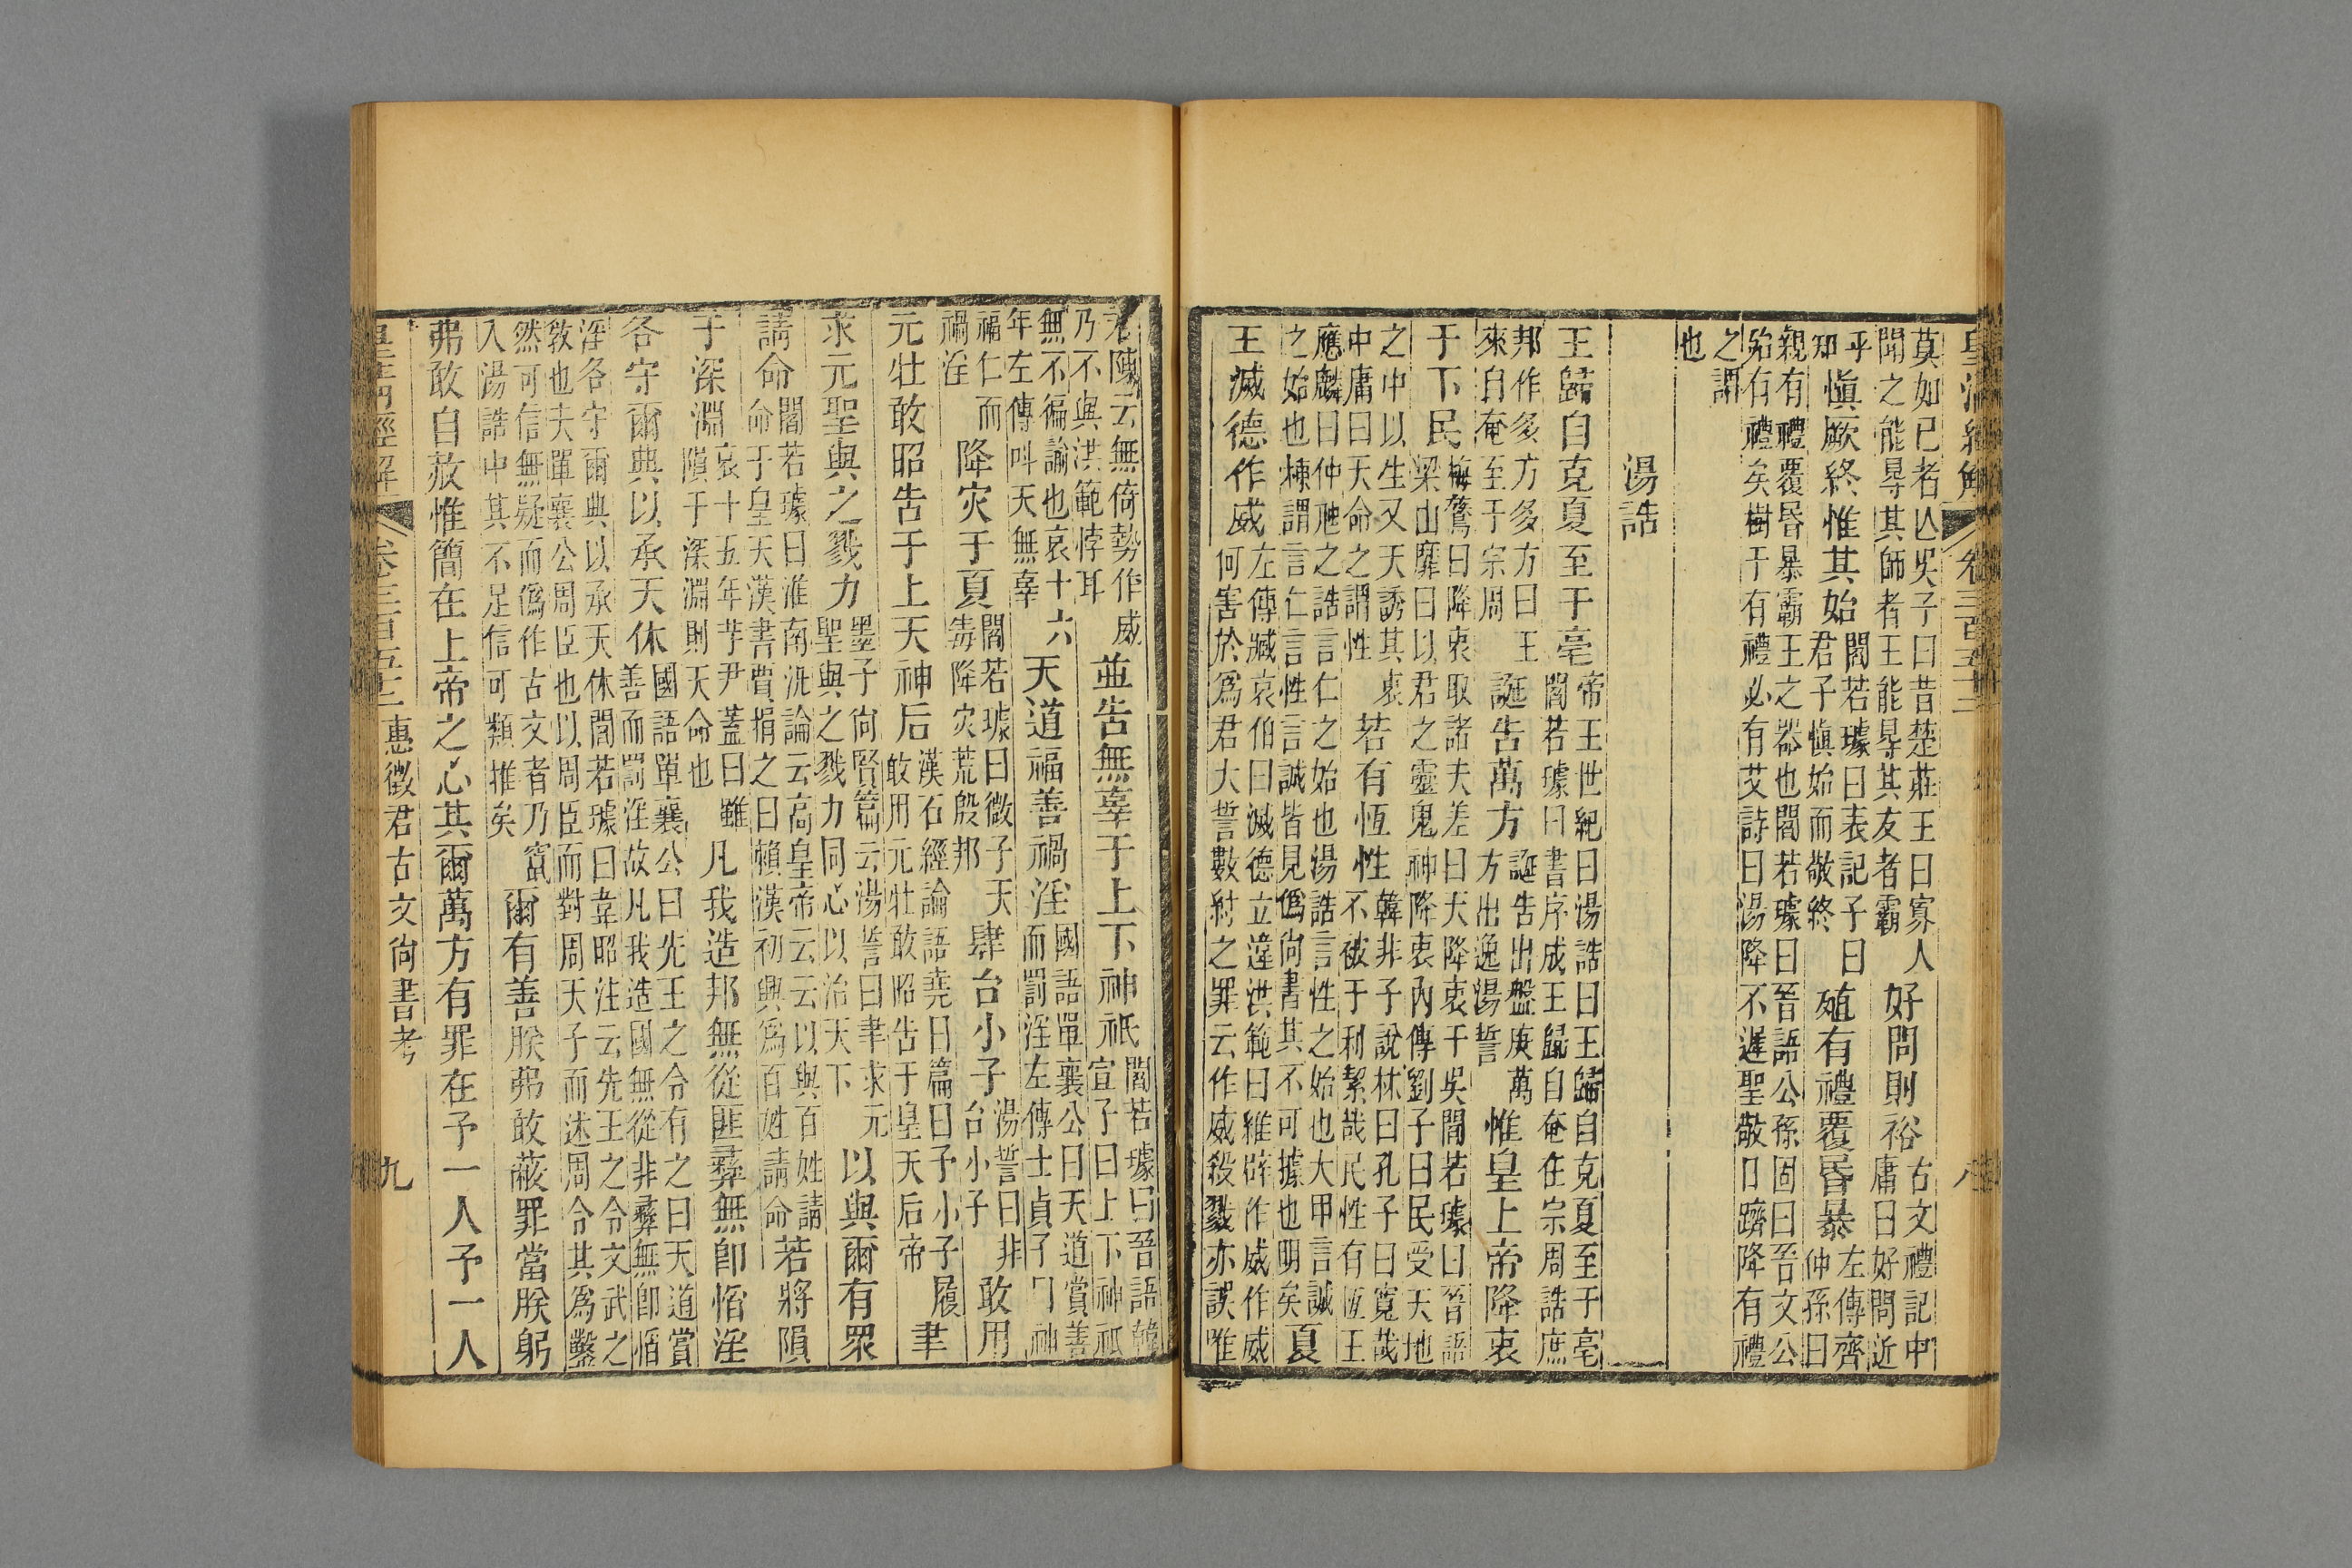 皇清經解 卷三百五十二 八
莫如已者亾吳子曰昔楚莊王曰寡人
聞之能㝵其師者王能㝵其友者霸
好問則裕
古文禮記中
庸曰好問近
乎
知
愼厥終惟其始
閻若璩曰表記子曰
君子愼始而敬終
殖有禮覆昬暴
左傳齊
仲孫曰
親有禮覆昬暴霸王之器也閻若璩曰晉語公孫固曰晉文公
殆有禮矣樹于有禮必有艾詩曰湯降不遲聖敬日躋降有禮
之謂
也
湯誥
王歸自克夏至于亳
帝王世紀曰湯誥曰王歸自克夏至于亳
閻若璩曰書序成王歸自奄在宗周誥庶
邦作多方多方曰王
來自奄至于宗周
誕告萬方
誕告出盤庚萬
方出逸湯誓
惟皇上帝降衷
于下民
梅鷟曰降衷取諸夫差曰天降衷于吳閻若璩曰晉語
梁由靡曰以君之靈鬼神降衷內傳劉子曰民受天地
之中以生又天誘其衷
中庸曰天命之謂性
若有恆性
韓非子說林曰孔子曰寬哉
不被于利絜哉民性有恆王
應麟曰仲虺之誥言仁之始也湯誥言性之始也大甲言誠
之始也棟謂言仁言性言誠皆見僞尙書其不可據也明矣
夏
王滅德作威
左傳臧哀伯曰滅德立違洪範曰維辟作威作威
何害於爲君大誓數紂之罪云作威殺戮亦誤唯
陳云無倚勢作威
乃不與洪範悖耳
並告無辜于上下神祇
閻若璩曰晉語韓
宣子曰上下神祇
無不徧諭也哀十六
年左傳呌天無辜
天道福善禍淫
國語單襄公曰天道賞善
而罰淫左傳士貞子曰神
福仁而
禍淫
降灾于夏
閻若璩曰微子天
毒降灾荒殷邦
肆台小子
湯誓曰非
台小子
敢用
元牡敢昭告于上天神后
漢石經論語堯曰篇曰予小子履
敢用元牡敢昭告于皇天后帝
聿
求元聖與之戮力
墨子尙賢篇云湯誓曰聿求元
聖與之戮力同心以治天下
以與爾有眾
請命
閻若璩曰淮南汎論云高皇帝云云以與百姓請
命于皇天漢書賈捐之曰賴漢初興爲百姓請命
若將隕
于深淵
哀十五年芋尹蓋曰雖
隕于深淵則天命也
凡我造邦無從匪彝無卽慆淫
各守爾典以承天休
國語單襄公曰先王之令有之曰天道賞
善而罰淫故凡我造國無從非彝無卽慆
淫各守爾典以承天休閻若璩曰韋昭注云先王之令文武之
敎也夫單襄公周臣也以周臣而對周天子而述周令其爲鑿
然可信無疑而僞作古文者乃竄
入湯誥中其不足信可類推矣
爾有善朕弗敢蔽罪當朕躬
弗敢自赦惟簡在上帝之心其爾萬方有罪在予一人予一人
皇淸經解 卷三百五十二 惠徵君古文尙書考 九